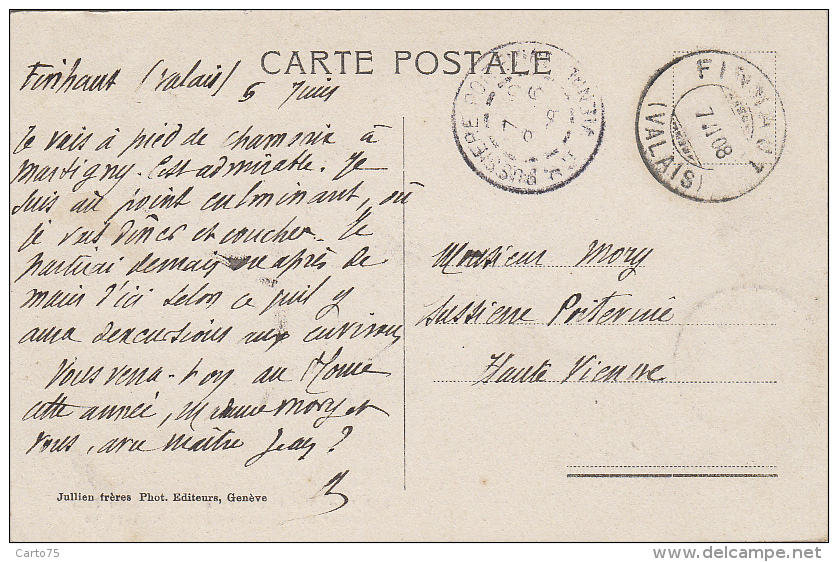 CARTE POSTALE
Finhaut (Valais)
5 Juin
Je vais à pied de Chamonix à
Martigny. Est admirable. Je
suis au point culminant, où
je vais dîner et coucher. Je
partirai demain ou après de
main d'ici selon ce qu'il y
aura d'excursions aux environs
Vous verra-t-on au
cette année, Madame Mory et
vous, avec Maître Jean ?
Monsieur Mory
Bussière Poitevine
Haute Vienne
BUSSIERE POITEVINE
FINHAUT
(VALAIS)
7 VI 08
Jullien frères Phot. Editeurs, Genève
Carto75
www.delcampe.net